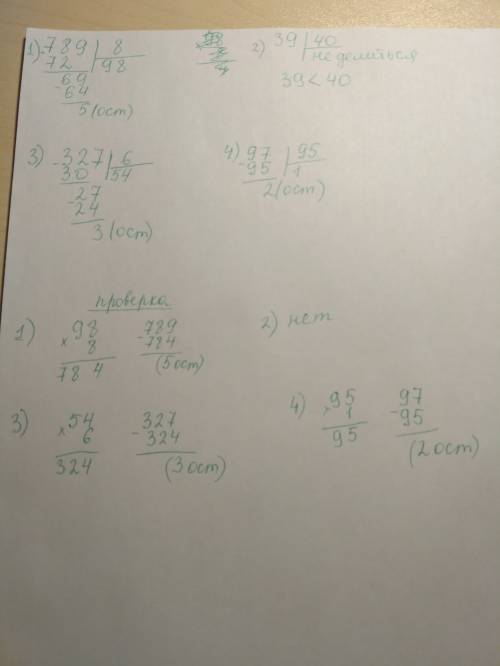 1) -789 | 8
72 | 98
69
-64
5 (ост)
2) 39 | 40
не делиться
39 < 40
3) -327 | 6
30 | 54
-27
24
3 (ост)
4) 97 | 95
-95 | 1
2 (ост)
проверка
1) 98
x 8
784
-789
784
(5 ост)
2) нет
3) 54
x 6
324
327
-324
(3 ост)
4) 95
x 1
95
97
-95
(2 ост)